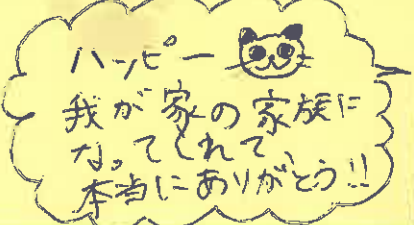 ハッピー
我が家の家族に
なってくれて、
本当にありがとう!!